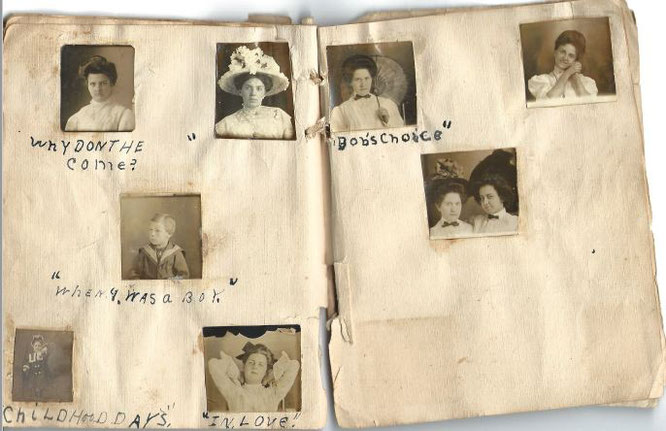 WHY DON THE "
COME?
"BOB'S CHOICE"
"WHEN I WAS A BOY."
CHILDHOOD DAYS",
"IN LOVE".